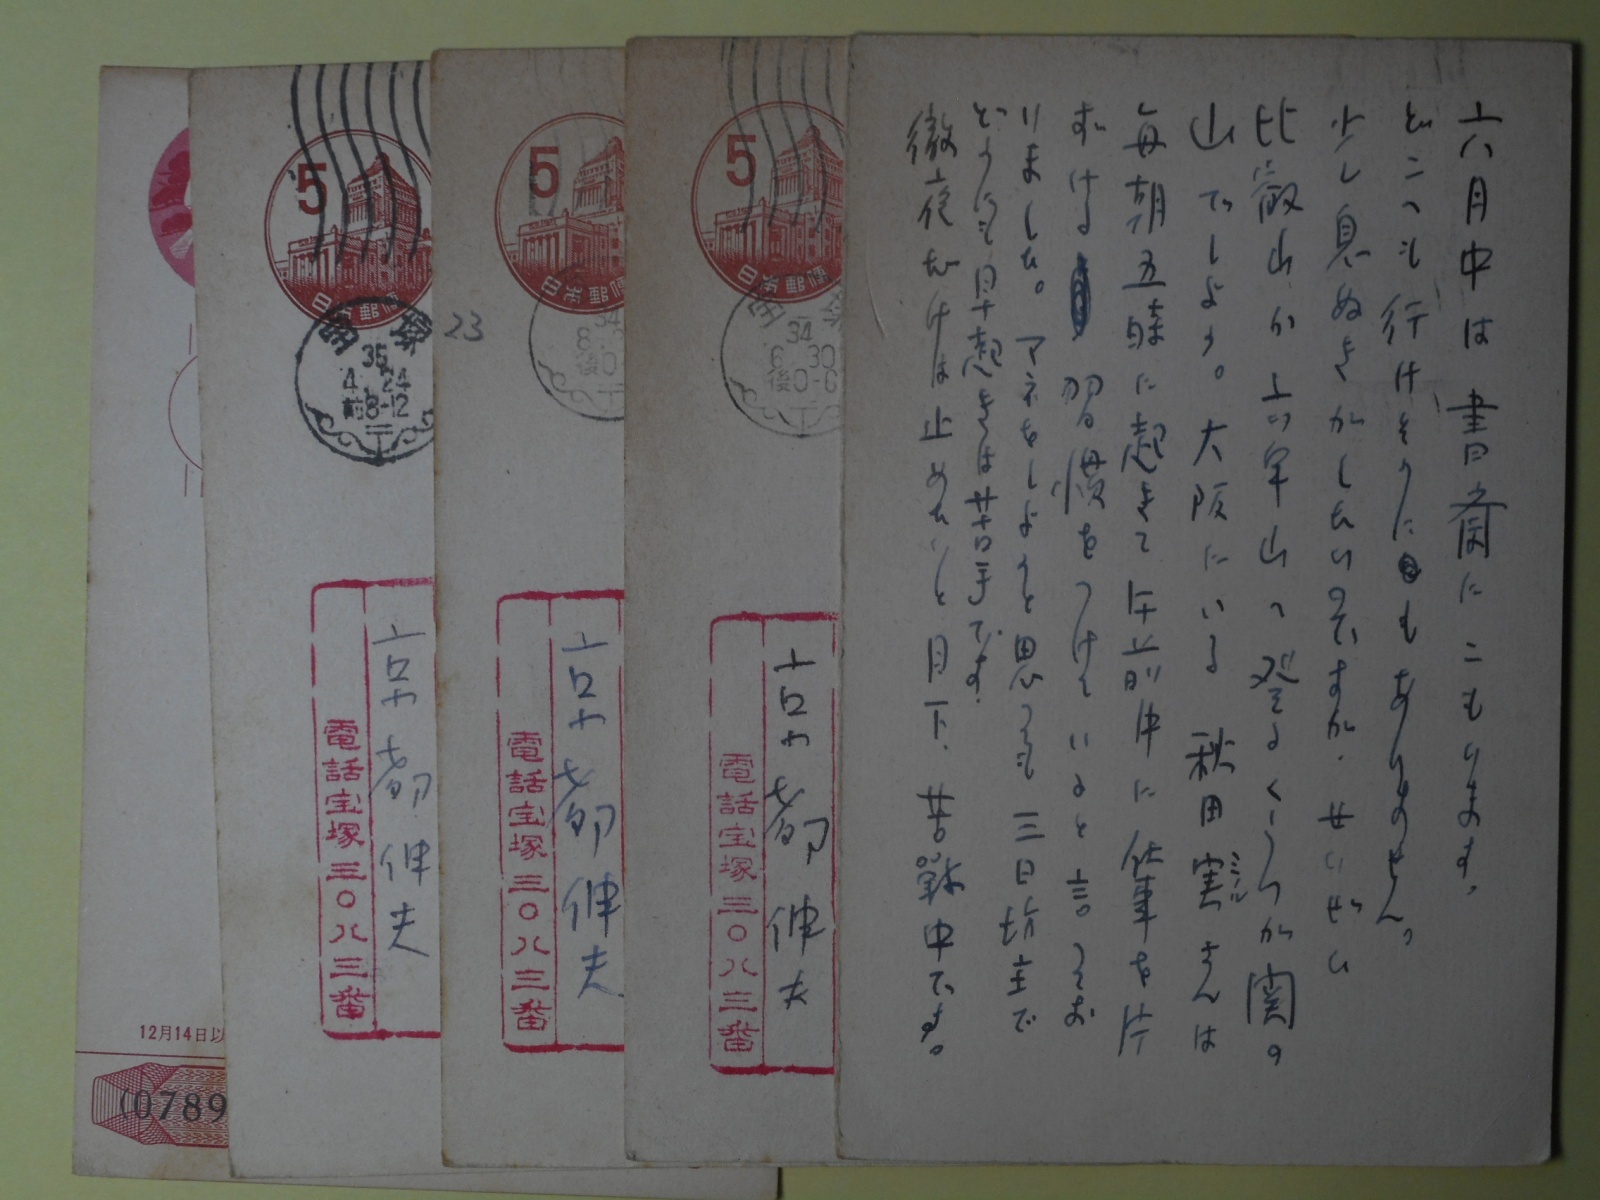 六月中は書斎にこもります。
どこへも行けそうにもありません。
少し息ぬきがしたいのですが、せいぜい
比叡山か六甲山へ登るくらいが関の
山でしょう。大阪にいる秋田実さんは
毎朝五時に起きて午前中に仕事を片
ずける習慣をつけていると言ってお
りました。マネをしようと思っても三日坊主で
どうも早起きは苦手です。
徹夜だけは止めたいと目下、苦戦中です。
5
日本郵便
34
6. 30
後0-6
京都伸夫
電話宝塚三〇八三番
5
日本郵便
34
8.
後0
23
京都伸夫
電話宝塚三〇八三番
5
日本郵便
35
4. 24
前8-12
京都伸夫
電話宝塚三〇八三番
12月14日以
0789